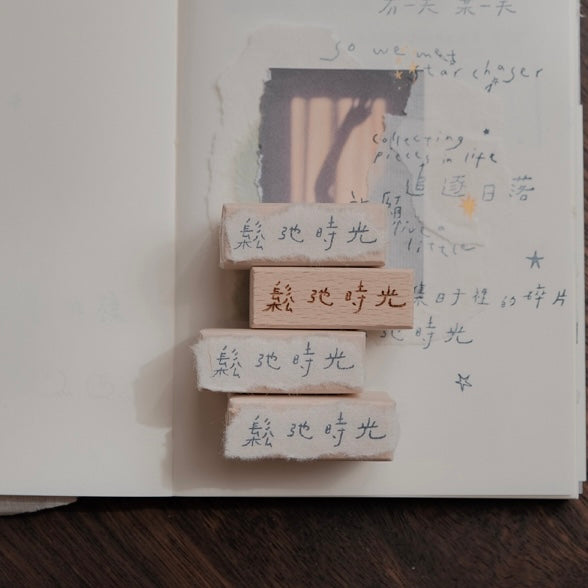 so we met
star chaser
collecting
pieces in life
追逐日落
live a
little
鬆弛時光
集日子裡的碎片
鬆弛時光
弛時光
鬆弛時光
鬆弛時光